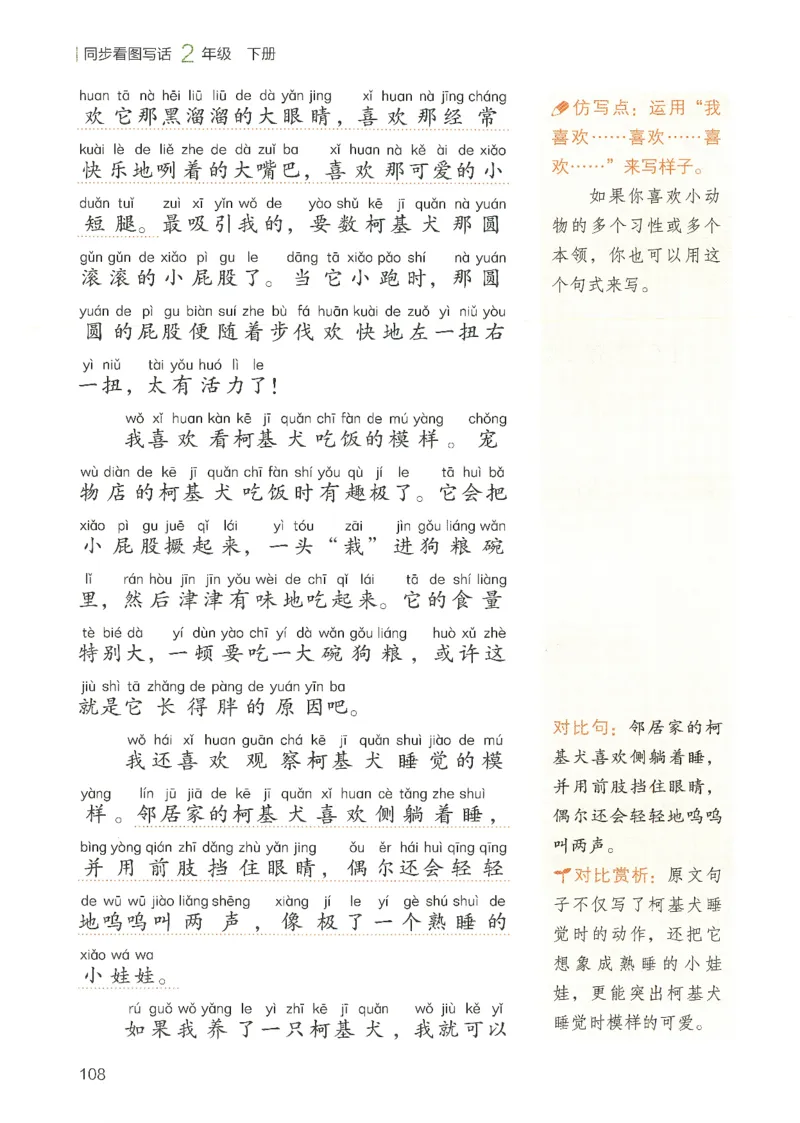 同步看图写话 2 年级 下册
huan tā nà hēi liū liū de dà yǎn jing xǐ huan nà jīng cháng
欢 它那黑溜溜的大眼睛，喜欢那经常
kuài lè de liě zhe de dà zuǐ ba xǐ huan nà kě ài de xiǎo
快乐地咧着的大嘴巴，喜欢那可爱的小
duǎn tuǐ zuì xī yǐn wǒ de yào shǔ kē jī quǎn nà yuán
短腿。最吸引我的，要数柯基犬那圆
gǔn gǔn de xiǎo pì gu le dāng tā xiǎo pǎo shí nà yuán
滚滚的小屁股了。当它小跑时，那圆
yuán de pì gu biàn suí zhe bù fá huān kuài de zuǒ yì niǔ yòu
圆的屁股便随着步伐欢快地左一扭右
yì niǔ tài yǒu huó lì le
一扭，太有活力了！
wǒ xǐ huan kàn kē jī quǎn chī fàn de mú yàng chǒng
我喜欢看柯基犬吃饭的模样。宠
wù diàn de kē jī quǎn chī fàn shí yǒu qù jí le tā huì bǎ
物店的柯基犬吃饭时有趣极了。它会把
xiǎo pì gu juē qǐ lái yì tóu zāi jìn gǒu liáng wǎn
小屁股撅起来，一头“栽”进狗粮碗
lǐ rán hòu jīn jīn yǒu wèi de chī qǐ lái tā de shí liàng
里，然后津津有味地吃起来。它的食量
tè bié dà yí dùn yào chī yí dà wǎn gǒu liáng huò xǔ zhè
特别大，一顿要吃一大碗狗粮，或许这
jiù shì tā zhǎng de pàng de yuán yīn ba
就是它长得胖的原因吧。
wǒ hái xǐ huan guān chá kē jī quǎn shuì jiào de mú
我还喜欢观察柯基犬睡觉的模
yàng lín jū jiā de kē jī quǎn xǐ huan cè tǎng zhe shuì
样。邻居家的柯基犬喜欢侧躺着睡，
bìng yòng qián zhī dǎng zhù yǎn jing ǒu ěr hái huì qīng qīng
并用前肢挡住眼睛，偶尔还会轻轻
de wū wū jiào liǎng shēng xiàng jí le yí gè shú shuì de
地呜呜叫两声，像极了一个熟睡的
xiǎo wá wa
小娃娃。
rú guǒ wǒ yǎng le yì zhī kē jī quǎn wǒ jiù kě yǐ
如果我养了一只柯基犬，我就可以
仿写点：运用“我
喜欢……喜欢……喜
欢……”来写样子。
如果你喜欢小动
物的多个习性或多个
本领，你也可以用这
个句式来写。
对比句：邻居家的柯
基犬喜欢侧躺着睡，
并用前肢挡住眼睛，
偶尔还会轻轻地呜呜
叫两声。
对比赏析：原文句
子不仅写了柯基犬睡
觉时的动作，还把它
想象成熟睡的小娃
娃，更能突出柯基犬
睡觉时模样的可爱。
108